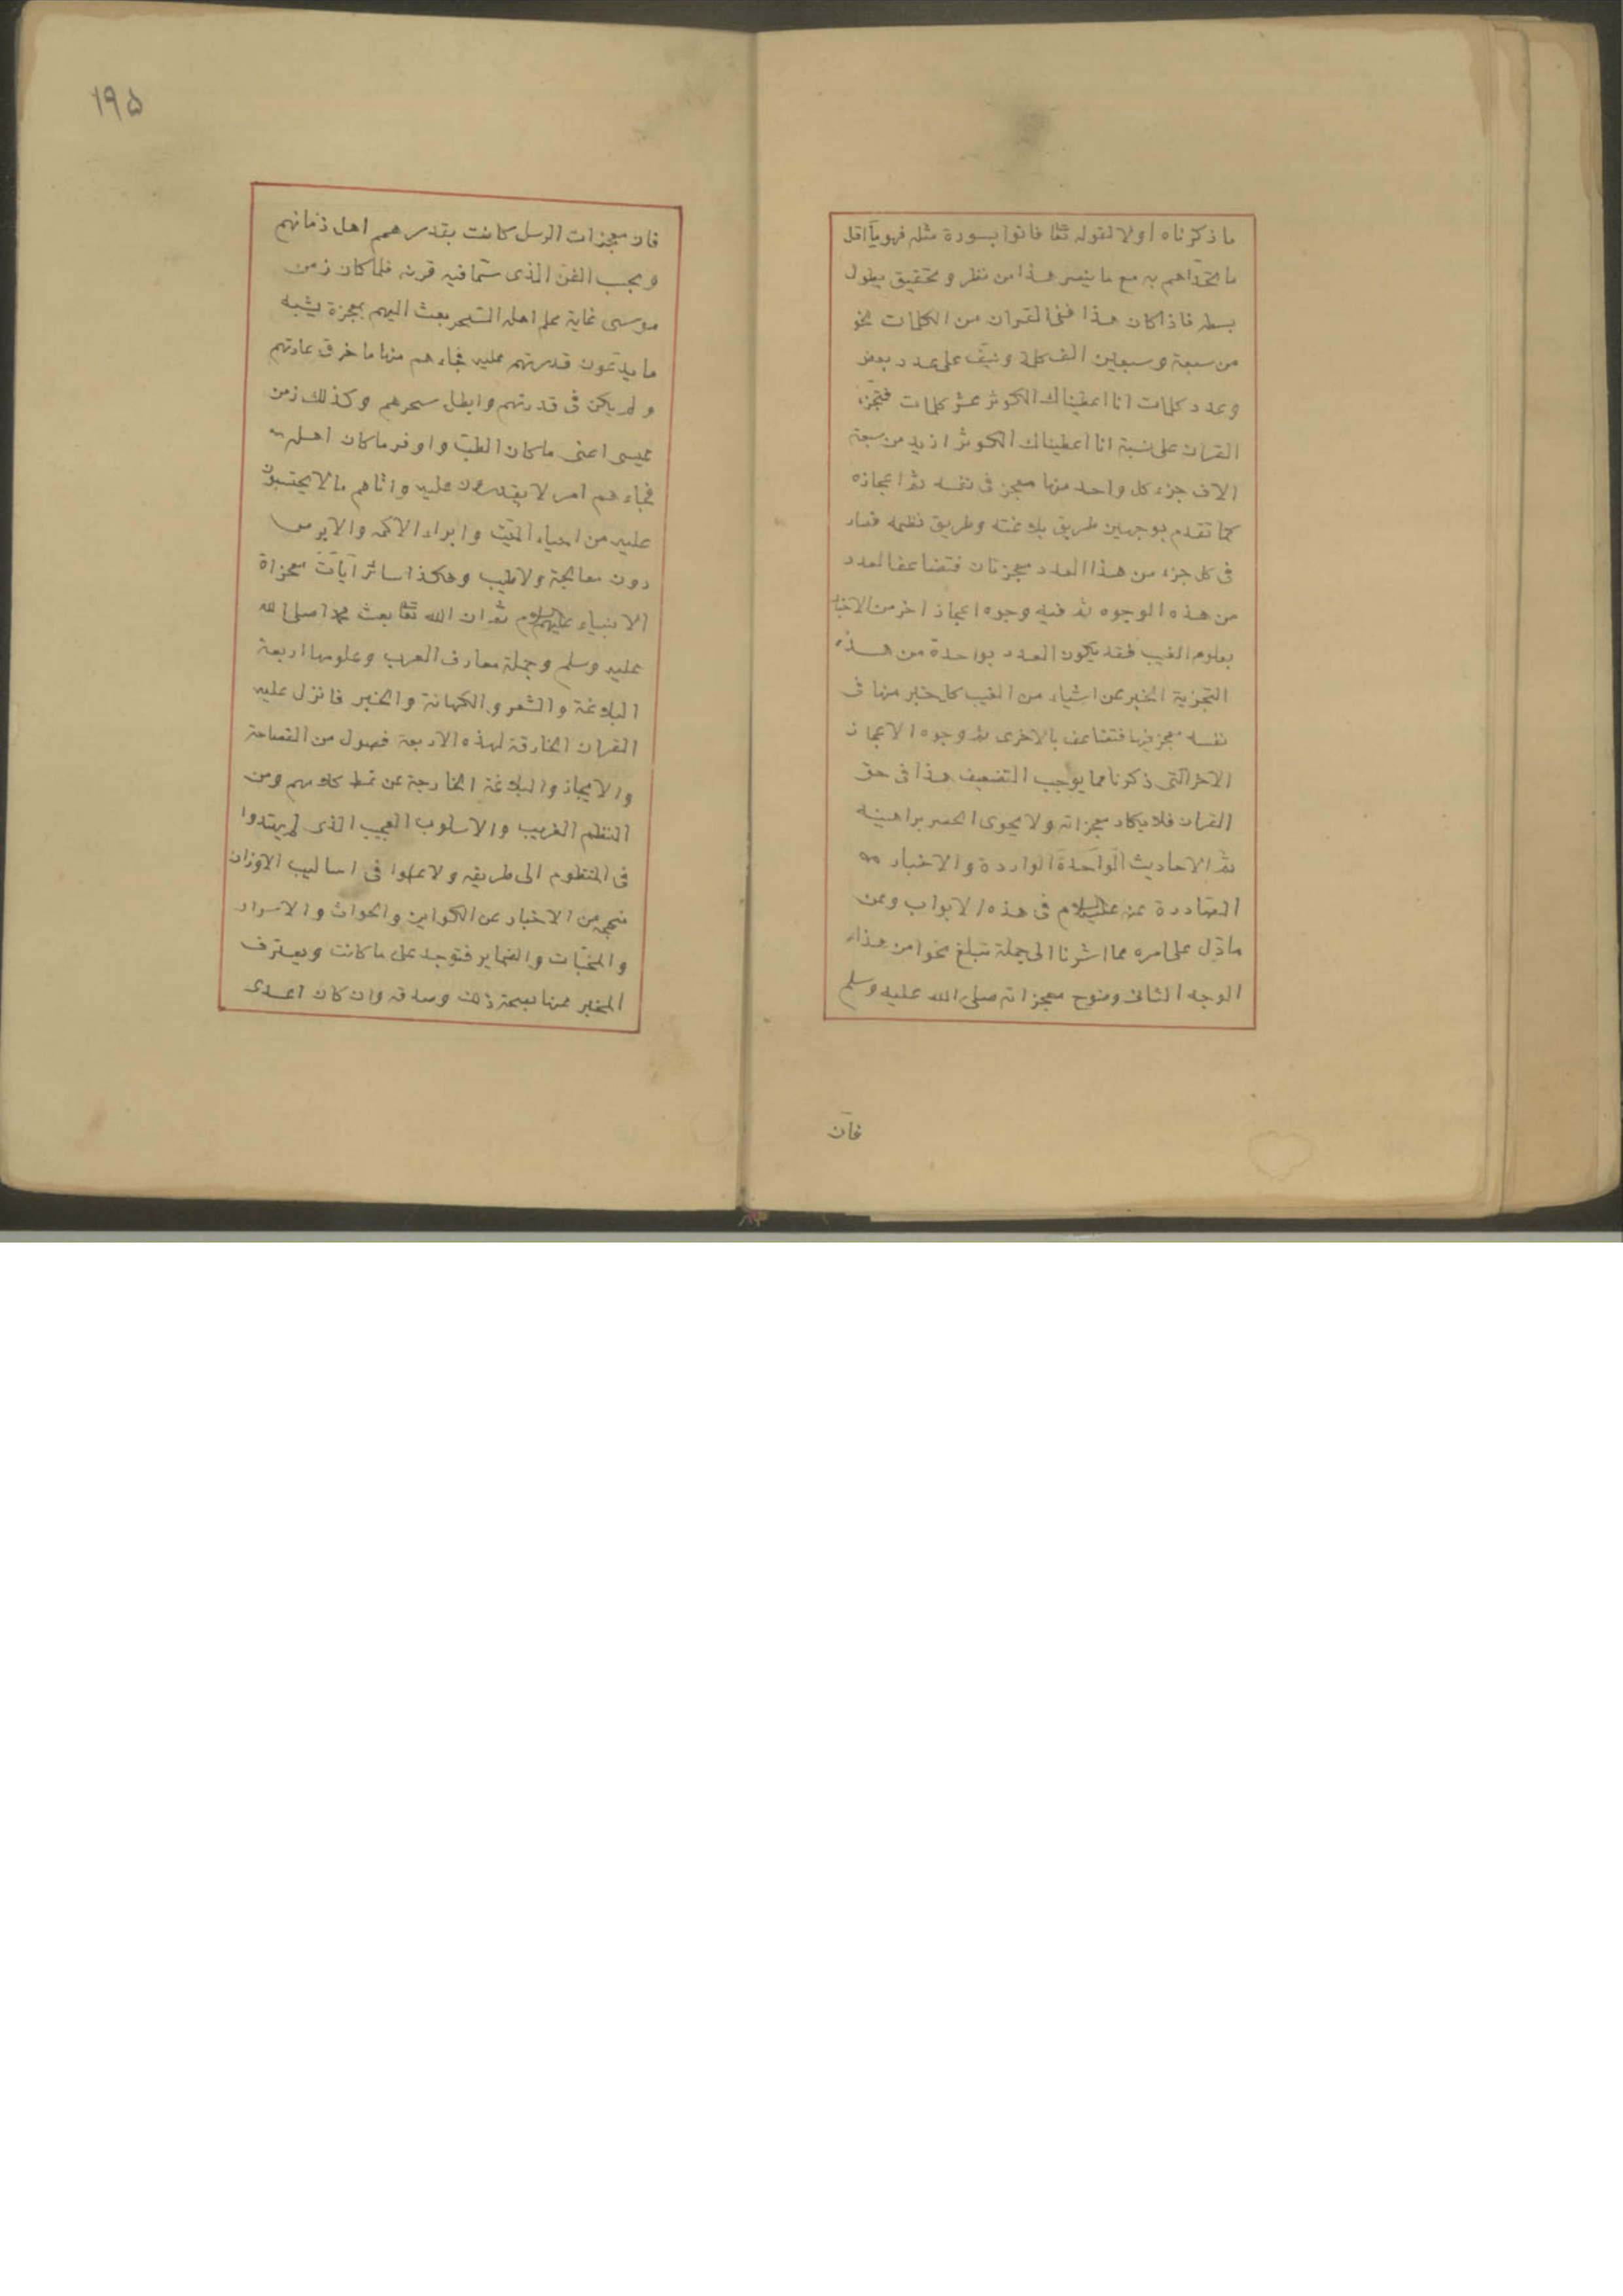 ما ذكرناه اولا لقوله تعا فاتوا بسورة مثله فهو اقل
ما تحداهم به مع ما ينصر هذا من نظر و تحقيق يطول
بسطه فاذا كان هذا ففى القران من الكلمات نحو
من سبعة و سبعين الف كلمة ونيف على عدد بعض
وعدد كلمات انا اعطيناك الكوثر عشر كلمات فتجزء
القران على نسبة انا اعطيناك الكوثر ازيد من سبعة
الاف جزء كل واحد منها معجز فى نفسه ثم اعجازه
كما تقدم بوجهين طريق بلاغته وطريق نظمه فصار
فى كل جزء من هذا العدد معجزتان فتضاعف العدد
من هذه الوجوه ثم فيه وجوه اعجاز اخر من الاخبار
بعلوم الغيب فقد يكون العدد بواحدة من هذه
التجزية الخبر عن اشياء من الغيب كل خبر منها فى
نفسه معجز فتضاعف بالاخرى ثم وجوه الاعجاز
الاخر التى ذكرنا مما يوجب التضعيف هذا فى حق
القران فلا يكاد معجزاته ولا يحوى الحصر براهينه
ثم الاحاديث الواحدة الواردة والاخبار
الصادرة عنه عليه السلام فى هذه الابواب وعن
ما دل على امره مما اشرنا الى جملة تبلغ نحوا من هذا
الوجه الثانى وضوح معجزاته صلى الله عليه وسلم
فان
١٩۵
فان معجزات الرسل كانت بقدر همم اهل زمانهم
و بحسب الفن الذى سما فيه قرنه فلما كان زمن
موسى غاية علم اهله السحر بعث اليهم بمعجزة يشبه
ما يدعون قدرتهم عليه فجاءهم منها ما خرق عادتهم
ولم يكن فى قدرتهم وابطل سحرهم وكذلك زمن
عيسى اعنى ما كان الطب و اوفر ما كان اهله
فجاءهم امر لا يقدرون عليه واتاهم ما لا يحتسبون
عليه من احياء الميت وابراء الاكمه والابرص
دون معالجة ولا طب وهكذا سائر آيات معجزاة
الانبياء عليهم السلام ثم ان الله تعا بعث محمدا صلى الله
عليه وسلم وجملة معارف العرب وعلومها اربعة
البلاغة والشعر والكهانة والخبر فانزل عليه
القران الخارقة لهذه الاربعة فصول من الفصاحة
والايجاز والبلاغة الخارجة عن نمط كلامهم ومن
النظم الغريب والاسلوب العجيب الذى لم يهتدوا
فى المنظوم الى طريقه ولا علموا فى اساليب الاوزان
منهجه من الاخبار عن الكواين والحواث والاسرار
والمخبات والضماير فتوجد على ما كانت ويعترف
المخبر عنها بصحة ذلك وصدقه وان كان اعدى